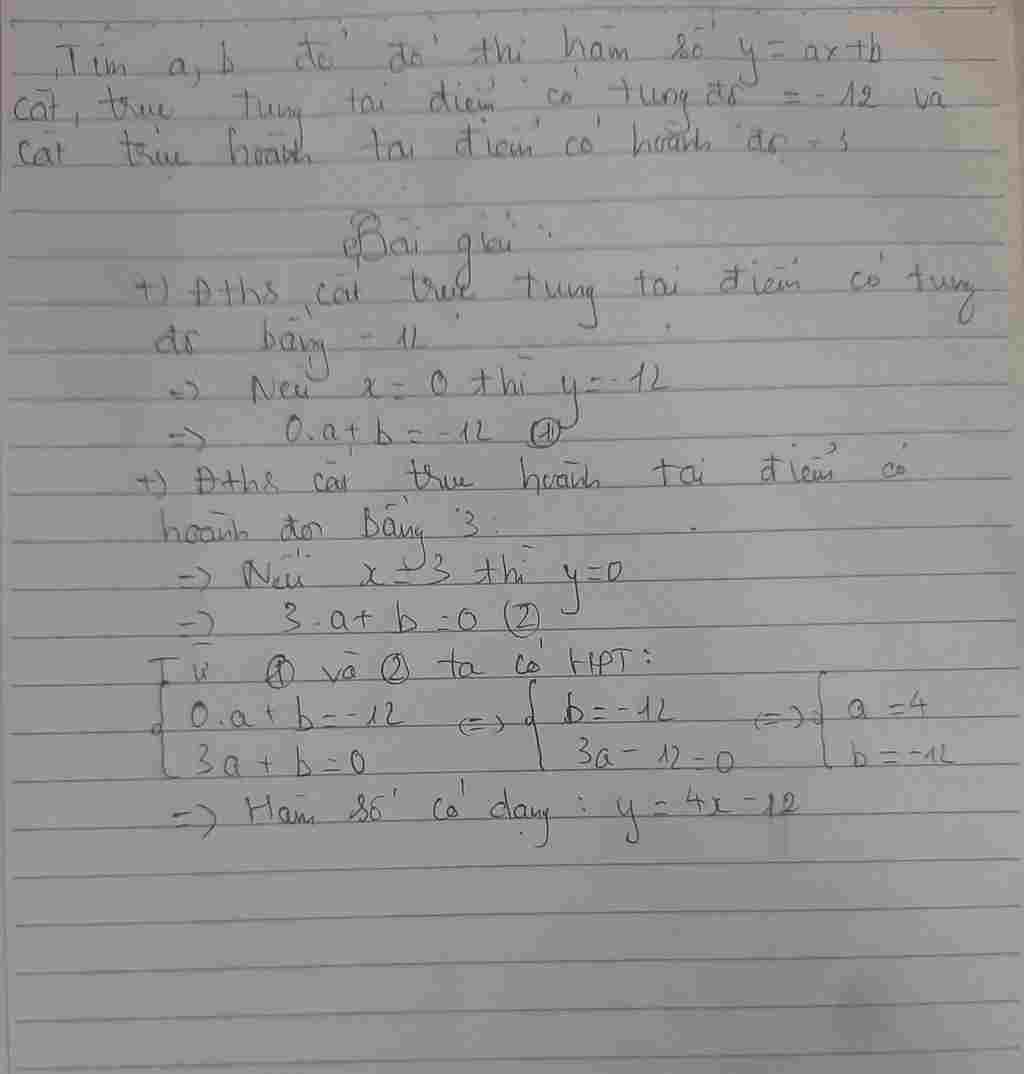 Tìm a, b để đồ thị hàm số y = ax + b
cắt trục tung tại điểm có tung độ = -12 và
cắt trục hoành tại điểm có hoành độ = 3
Bài giải :
+) Đths cắt trục tung tại điểm có tung
độ bằng -12
=> Nếu x = 0 thì y = -12
=> 0.a + b = -12 ①
+) Đths cắt trục hoành tại điểm có
hoành độ bằng 3
=> Nếu x = 3 thì y = 0
=> 3.a + b = 0 ②
Từ ① và ② ta có HPT :
{ 0.a + b = -12 <=> { b = -12 <=> { a = 4
3a + b = 0 3a - 12 = 0 b = -12
=> Hàm số có dạng : y = 4x - 12